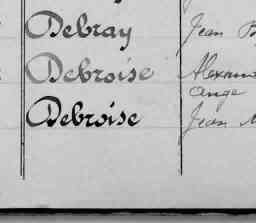 Debray Jean
Debroise
Ange
Debroise Jean